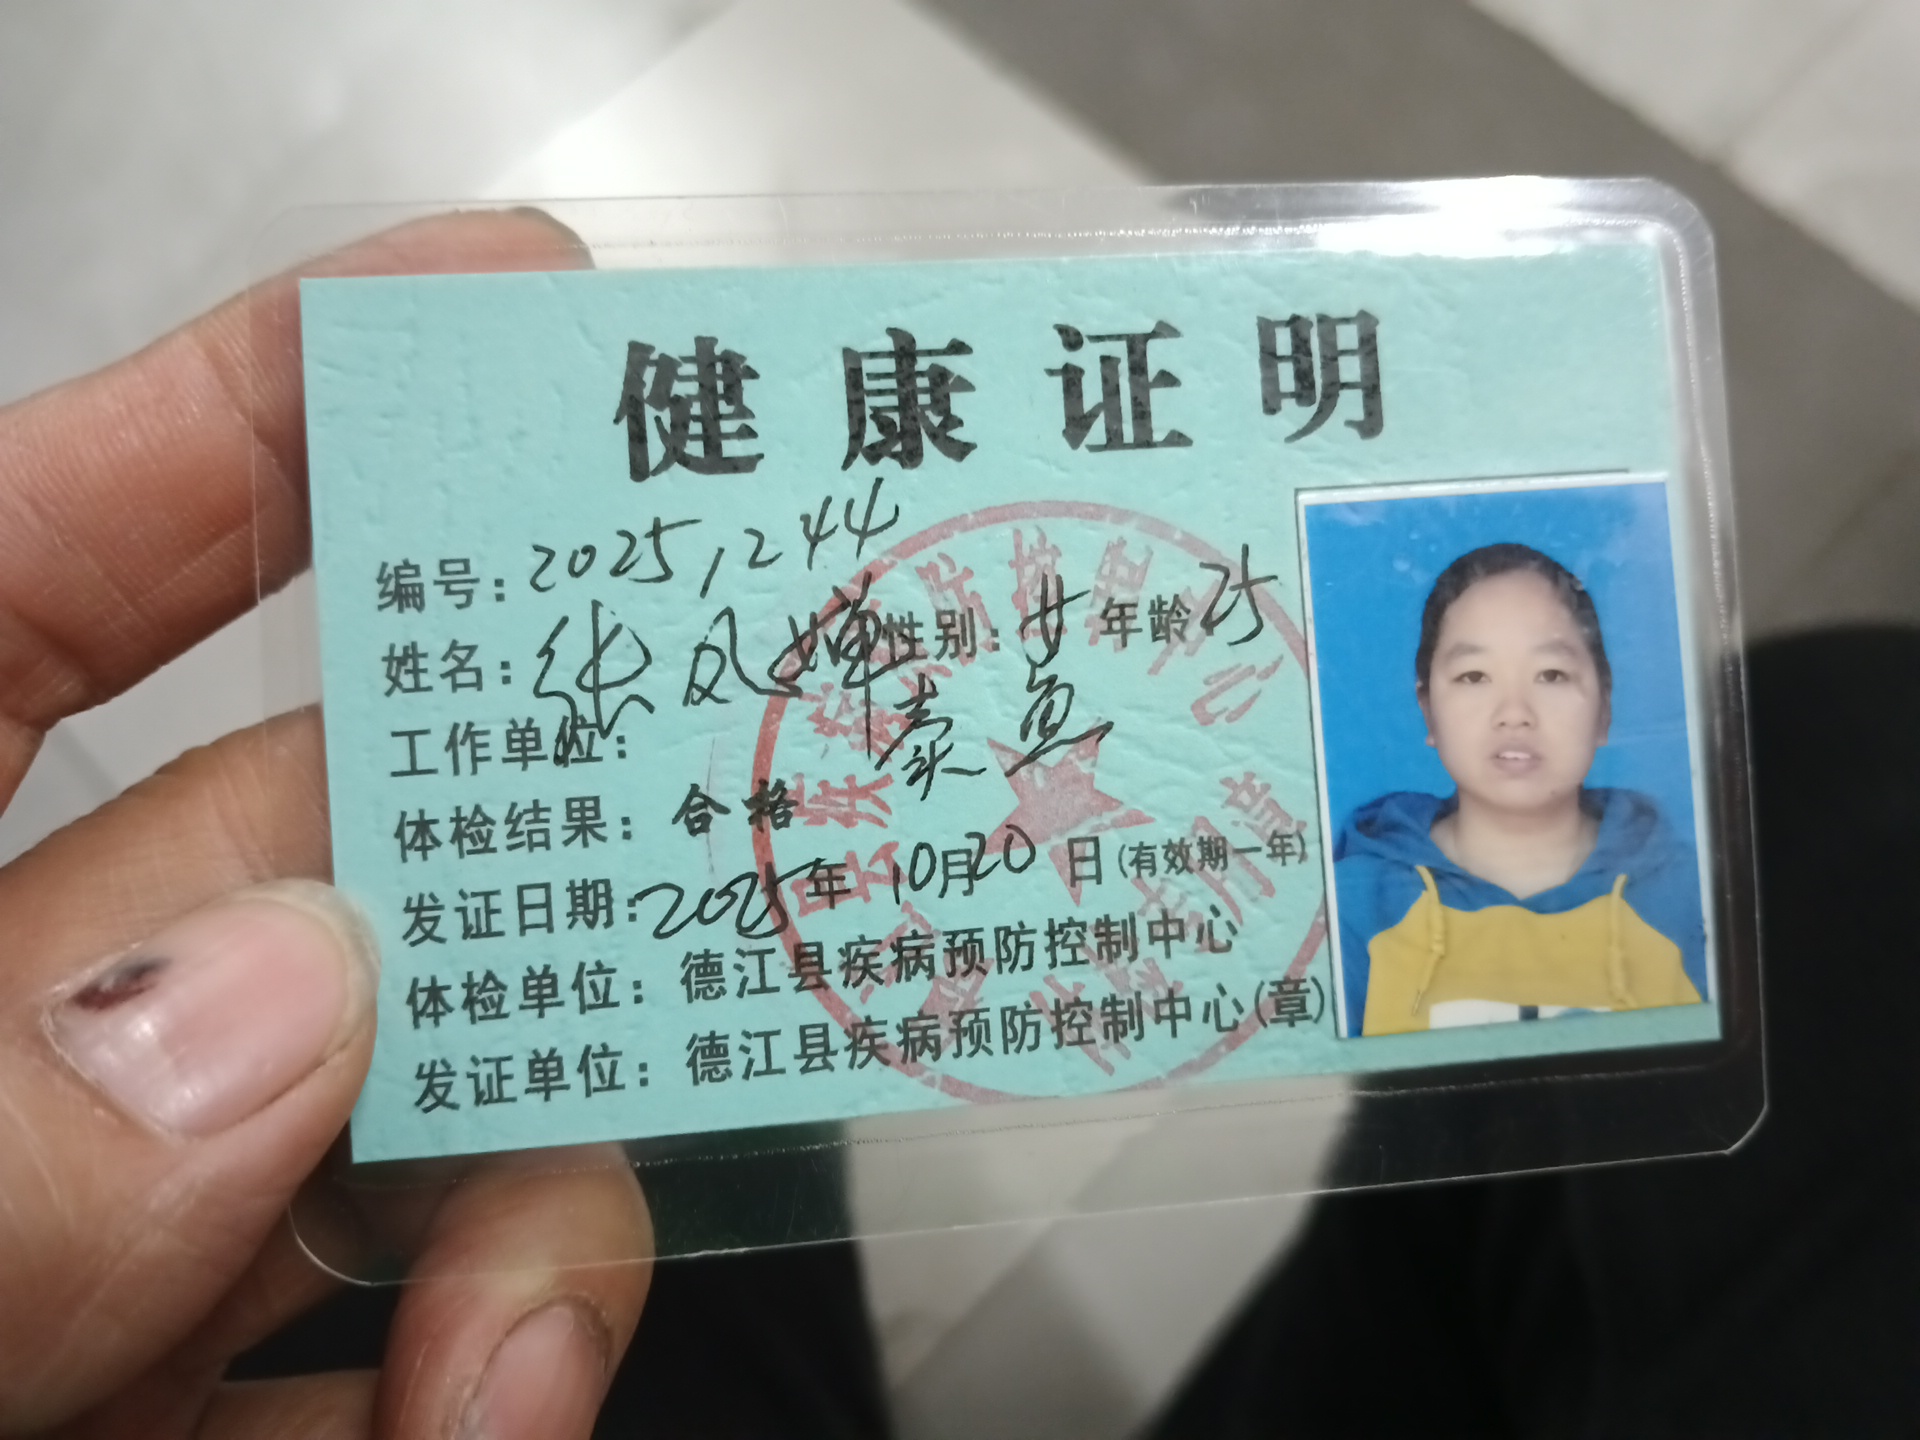 健康证明
编号：2025,244
姓名：张凤婵 性别：女 年龄 25
工作单位：卖鱼
体检结果：合格
发证日期：2025年10月20日(有效期一年)
体检单位：德江县疾病预防控制中心
发证单位：德江县疾病预防控制中心(章)